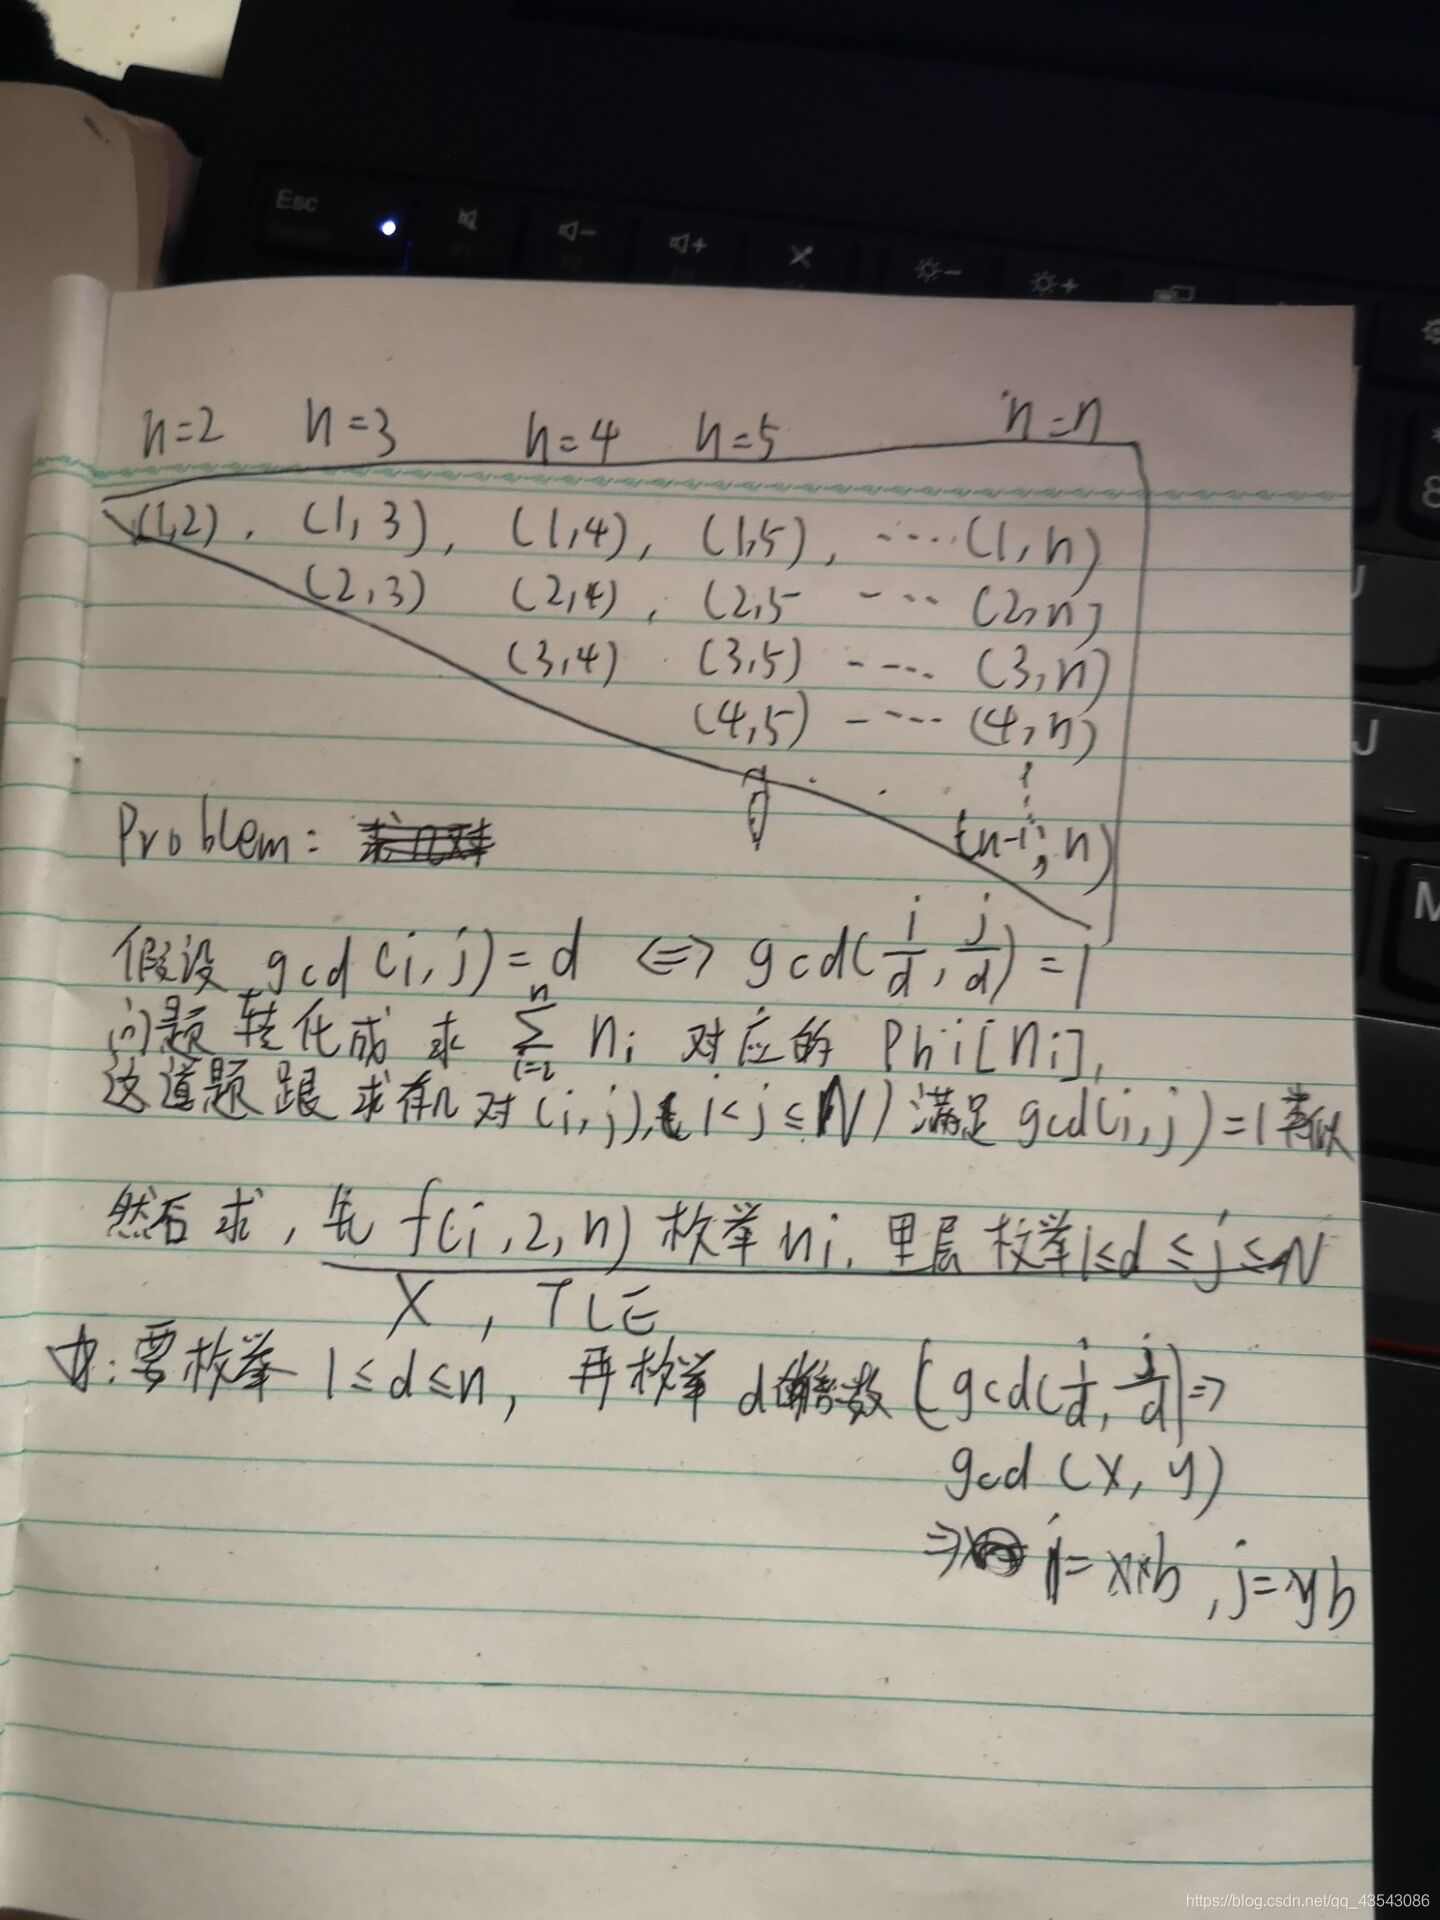 Esc
n=2 n=3 n=4 n=5 n=n
(1,2), (1,3), (1,4), (1,5), ····(1,n)
(2,3) (2,4), (2,5 --- (2,n)
(3,4) (3,5) ---- (3,n)
(4,5) ---- (4,n)
(n-1, n)
Problem:
假设 gcd(i,j)=d <=> gcd(i/d, j/d)=1
问题转化成 求 n∑i=2 ni 对应的 Phi[ni],
这道题跟求有几对(i,j),(i<j≤N)满足gcd(i,j)=1类似
然后求, 先 f(i,2,n) 枚举ni. 里层枚举1≤d≤j≤N
X , TLE
要枚举 1≤d≤n, 再枚举 d 倍数 (gcd(i/d, j/d)=>
gcd (x, y)
=> i=x*b , j=yb
J
M
8
https://blog.csdn.net/qq_43543086